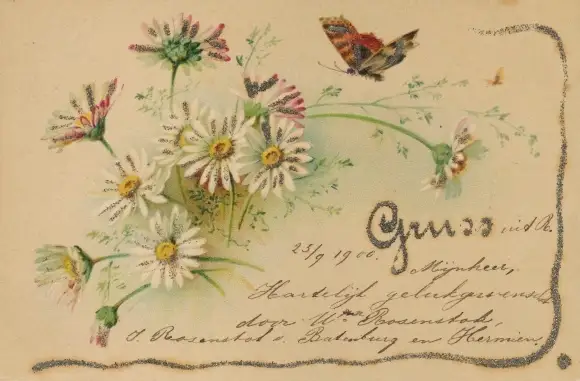 Gruss uit R.
23/9 1900.
Mijnheer,
Hartelijk gelukgewenscht
door Wme Rosenstok,
J. Rosenstok v. Batenburg en Hermien,